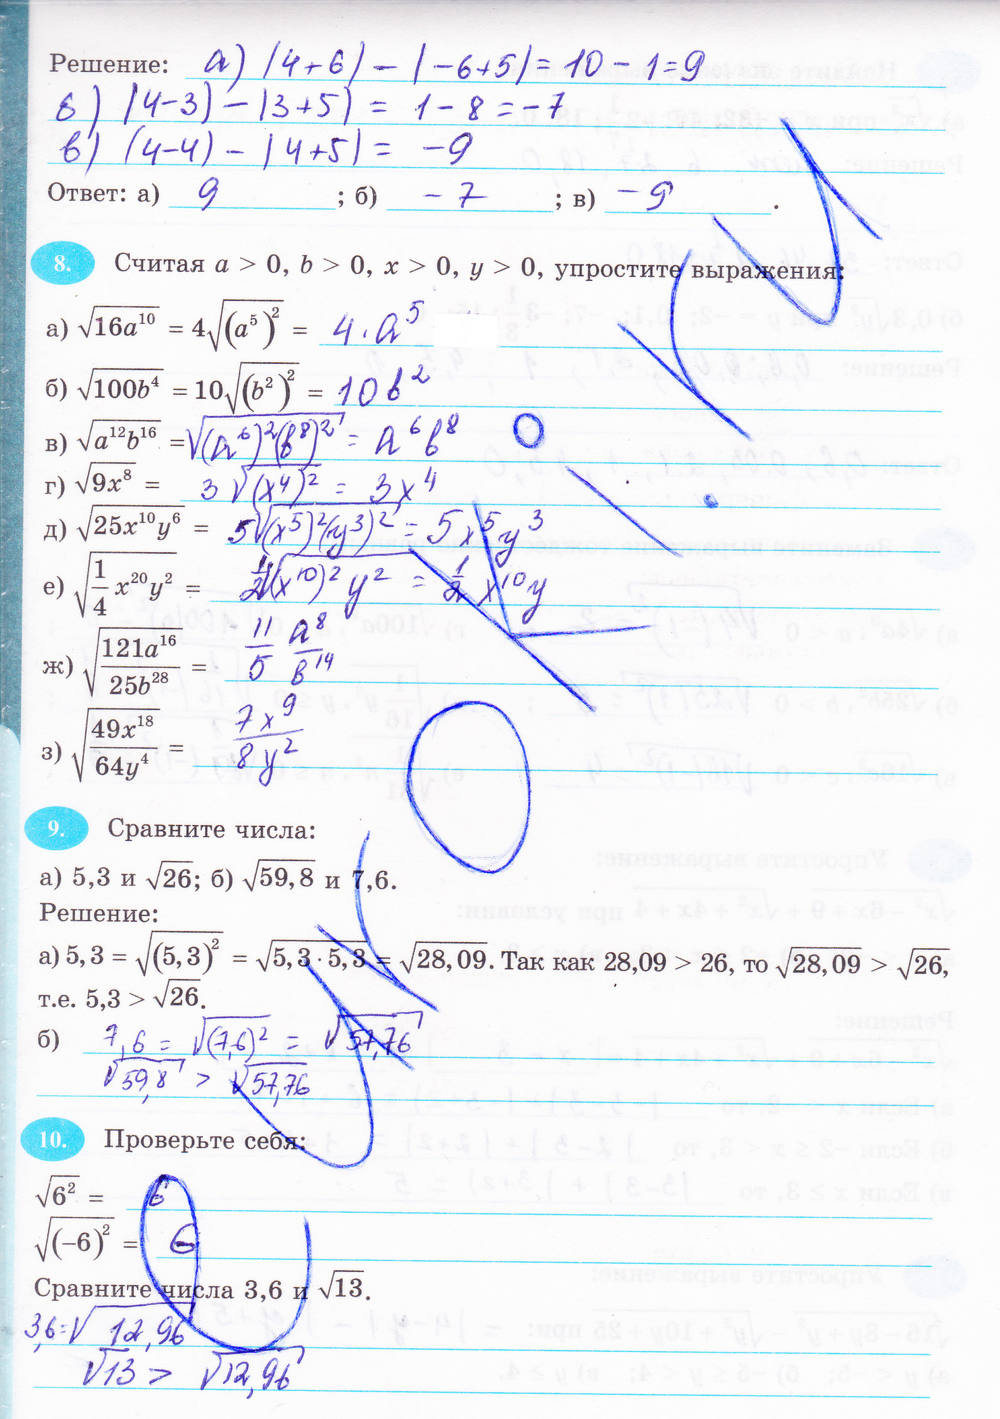 Решение: а) |4+6| – |–6+5| = 10 – 1 = 9
б) |4–3| – |3+5| = 1 – 8 = –7
в) (4–4) – |4+5| = –9
Ответ: а) 9 ; б) –7 ; в) –9 .
8. Считая a > 0, b > 0, x > 0, y > 0, упростите выражения:
а) √(16a¹⁰) = 4√((a⁵)²) = 4·a⁵
б) √(100b⁴) = 10√((b²)²) = 10b²
в) √(a¹²b¹⁶) = √((a⁶)²(b⁸)²) = a⁶b⁸
г) √(9x⁸) = 3√((x⁴)²) = 3x⁴
д) √(25x¹⁰y⁶) = 5√((x⁵)²(y³)²) = 5x⁵y³
е) √(1/4 x²⁰y²) = 1/2√((x¹⁰)²y²) = 1/2 x¹⁰y
ж) √(121a¹⁶/25b²⁸) = 11/5 a⁸/b¹⁴
з) √(49x¹⁸/64y⁴) = 7x⁹/8y²
9. Сравните числа:
а) 5,3 и √26; б) √59,8 и 7,6.
Решение:
а) 5,3 = √((5,3)²) = √(5,3·5,3) = √28,09. Так как 28,09 > 26, то √28,09 > √26,
т.е. 5,3 > √26.
б) 7,6 = √((7,6)²) = √57,76
√59,8 > √57,76
10. Проверьте себя:
√(6²) = 6
√((–6)²) = 6
Сравните числа 3,6 и √13.
3,6 = √12,96
√13 > √12,96